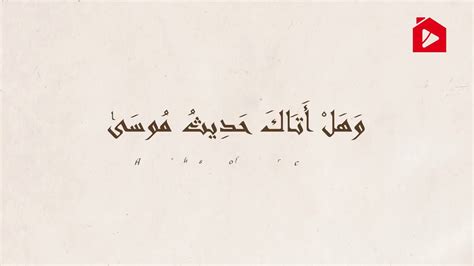 وَهَلْ أَتَاكَ حَدِيثُ مُوسَىٰ